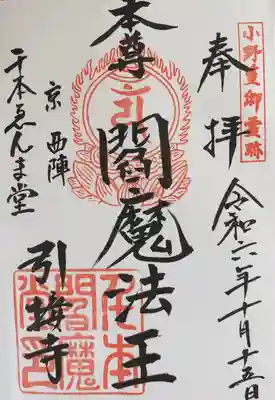 小野篁御靈跡
奉拝
令和六年十月十五日
本尊
閻魔法王
引接寺
京 西陣
千本ゑんま堂